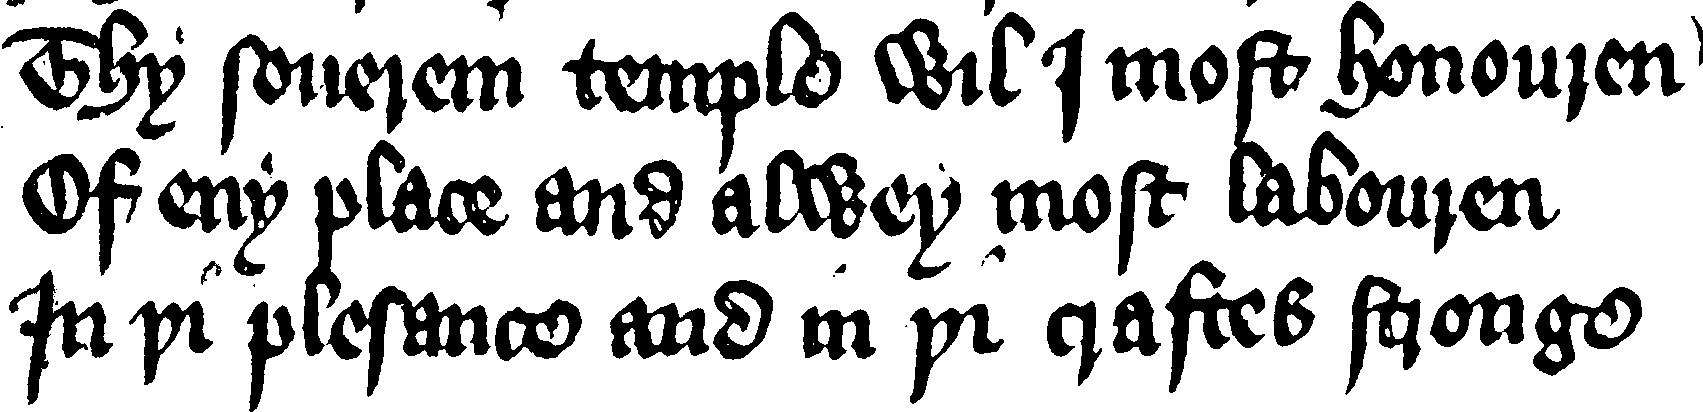 Thy souerein temple wil I most honouren
Of eny place and alwey most labouren
In yi plesance and in yi craftes stronge